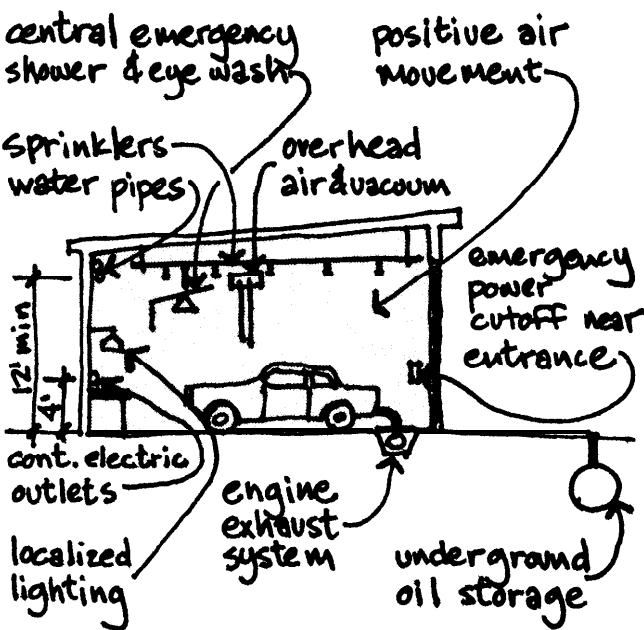 central emergency
shower & eye wash
positive air
movement
sprinklers
water pipes
overhead
air & vacoum
emergency
power
cutoff near
entrance
12' min
4'
cont. electric
outlets
localized
lighting
engine
exhaust
system
underground
oil storage